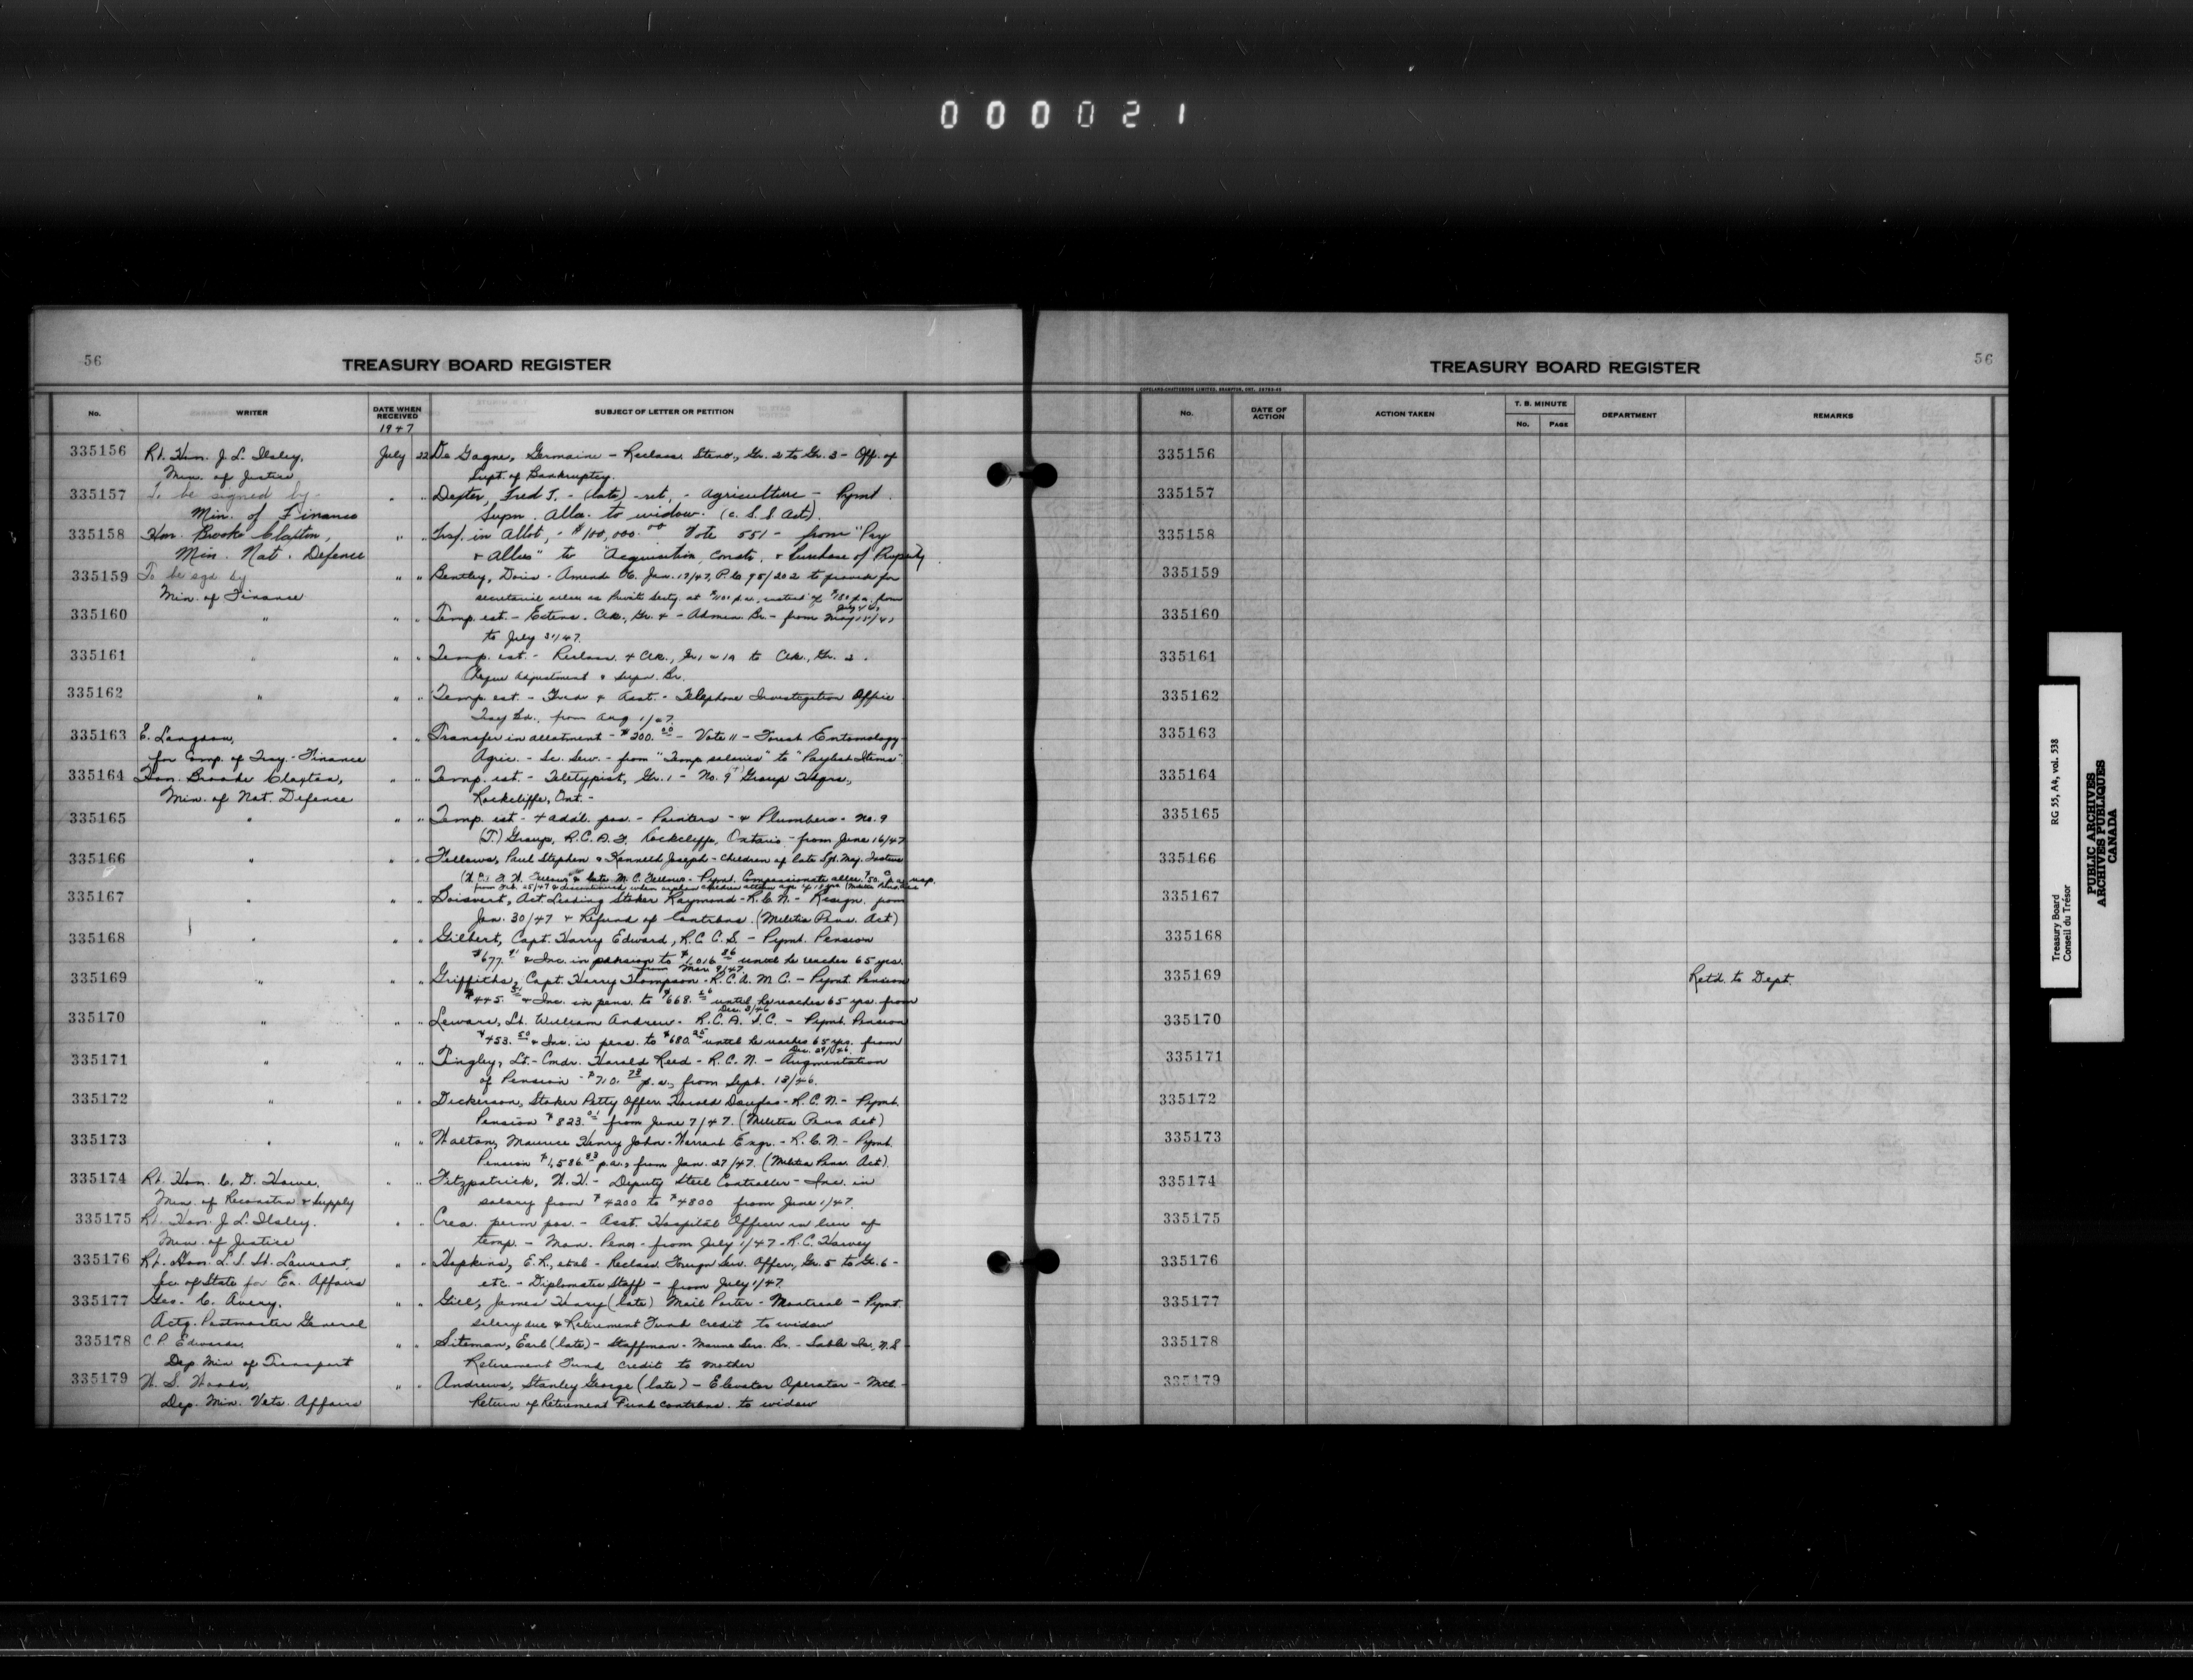 000021
56
TREASURY BOARD REGISTER
No. WRITER DATE WHEN RECEIVED SUBJECT OF LETTER OR PETITION
1947
335156 Rt. Hon. J. L. Ilsley, July 22 De Gagne, Germaine - Reclass. Steno., Gr. 2 to Gr. 3 - Off. of
Min. of Justice Supt. of Bankruptcy.
335157 To be signed by - " " Dexter, Fred T. - (late) - ret. - Agriculture - Pymt.
Min. of Finance Supn. Allce. to widow. (C. S. S. Act).
335158 Hon. Brooke Claxton, " " Trsf. in Allot. - $100,000.00 Vote 551 - from "Pay
Min. Nat. Defence & Allces" to "Acquisition, Constr. & Purchase of Property
335159 To be sgd. by " " Bentley, Doris - Amend. OC. Jan. 17/47, P.C. 95/202 to provide for
Min. of Finance secretarial allces as Private Secty. at p.a. instead of p.a. from
335160 " " " Temp. est. - Extens. Clk., Gr. 4 - Admin. Br. - from May 15/47
to July 31/47.
335161 " " " Temp. est. - Reclass. 4 Clk., Gr. 1 or 1A to Clk., Gr. 2.
Cheque Adjustment & Supn. Br.
335162 " " " Temp. est. - & Asst. - Telephone Investigation Office
Treas. Bd., from Aug 1/47.
335163 E. Langdon, " " Transfer in allotment - $200.00 - Vote 11 - Forest Entomology
for Comp. of Treas. - Finance Agric. - Sc. Serv. - from "Temp salaries" to "Paylist Items".
335164 Hon. Brooke Claxton, " " Temp. est. - Teletypist, Gr. 1 - No. 9 (T) Group Hdqrs.,
Min. of Nat. Defence Rockcliffe, Ont. -
335165 " " " Temp. est - 4 addl. pos. - Painters - & Plumbers - No. 9
(T.) Group, R.C.A.F. Rockcliffe, Ontario - from June 16/47
335166 " " " Fellows, Paul Stephen & Kenneth Joseph - Children of late Sgt. Maj. Instru
F. W. Fellows & late M. C. Fellows - Pymt. Compassionate allce. $50.
from Feb. 25/47 & discontinued when orphan children attain age of 18 yrs (Militia Pens. Act)
335167 " " " Boisvert, Act. Leading Stoker Raymond - R.C.N. - Resign. from
Jan. 30/47 & Refund of Contrbns. (Militia Pens. Act)
335168 " " " Gilbert, Capt. Harry Edward, R.C.C.S. - Pymt. Pension
$677. & Inc. in pension to $1,016.86 until he reaches 65 yrs.
from Mar. 9/47
335169 " " " Griffiths, Capt. Harry Thompson - R.C.A.M.C. - Pymt. Pension
$445. & Inc. in pens. to $668. until he reaches 65 yrs. from
Dec. 3/46
335170 " " " Lewars, Lt. William Andrew - R.C.A.S.C. - Pymt. Pension
$453.50 & Inc. in pens. to $680.25 until he reaches 65 yrs. from
Dec. 29/46.
335171 " " " Pingley, Lt.-Cmdr. Harold Reed - R.C.N. - Augmentation
of Pension - $710.73 p.a., from Sept. 13/46.
335172 " " " Dickerson, Stoker Petty Offcr. Harold Douglas - R.C.N. - Pymt.
Pension $823.01 from June 7/47. (Militia Pens Act)
335173 " " " Walton, Maurice Henry John - Warrant Engr. - R.C.N. - Pymt.
Pension $1,586.83 p.a., from Jan. 27/47. (Militia Pens. Act).
335174 Rt. Hon. C. D. Howe, " " Fitzpatrick, W. H. - Deputy Steel Controller - Inc. in
Min. of Reconstrn & Supply salary from $4200 to $4800 from June 1/47.
335175 Rt. Hon. J. L. Ilsley. " " Crea. perm pos. - Asst. Hospital Officer in lieu of
Min. of Justice temp. - Man. Pen. - from July 1/47 - R. C. Harvey
335176 Rt. Hon. L. S. St. Laurent, " " Hopkins, E. R., et al - Reclass. Foreign Serv. Officer, Gr. 5 to Gr. 6 -
Sec. of State for Ex. Affairs etc. - Diplomatic Staff - from July 1/47.
335177 Geo. C. Avery, " " Gill, James Henry (late) Mail Porter - Montreal - Pymt.
Actg. Postmaster General salary due & Retirement Fund credit to widow
335178 C. P. Edwards, " " Siteman, Earl (late) - Staffman - Marine Serv. Br. - Sable Is., N.S.
Dep. Min of Transport Retirement Fund credit to mother
335179 W. S. Woods, " " Andrews, Stanley George (late) - Elevator Operator - Mtl -
Dep. Min. Vets. Affairs Return of Retirement Fund contrbns. to widow
TREASURY BOARD REGISTER
56
COPELAND-CHATTERSON LIMITED, BRAMPTON, ONT.
No. DATE OF ACTION ACTION TAKEN T. B. MINUTE No. PAGE DEPARTMENT REMARKS
335156
335157
335158
335159
335160
335161
335162
335163
335164
335165
335166
335167
335168
335169 Retd. to Dept.
335170
335171
335172
335173
335174
335175
335176
335177
335178
335179
Treasury Board RG 55, A4, vol. 538
Conseil du Trésor
PUBLIC ARCHIVES
ARCHIVES PUBLIQUES
CANADA